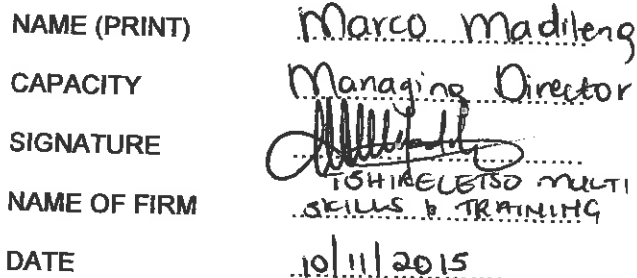 NAME (PRINT) Marco Madileng
CAPACITY Managing Director
SIGNATURE
TSHIRELETSO MULTI
NAME OF FIRM SKILLS & TRAINING
DATE 10/11/2015